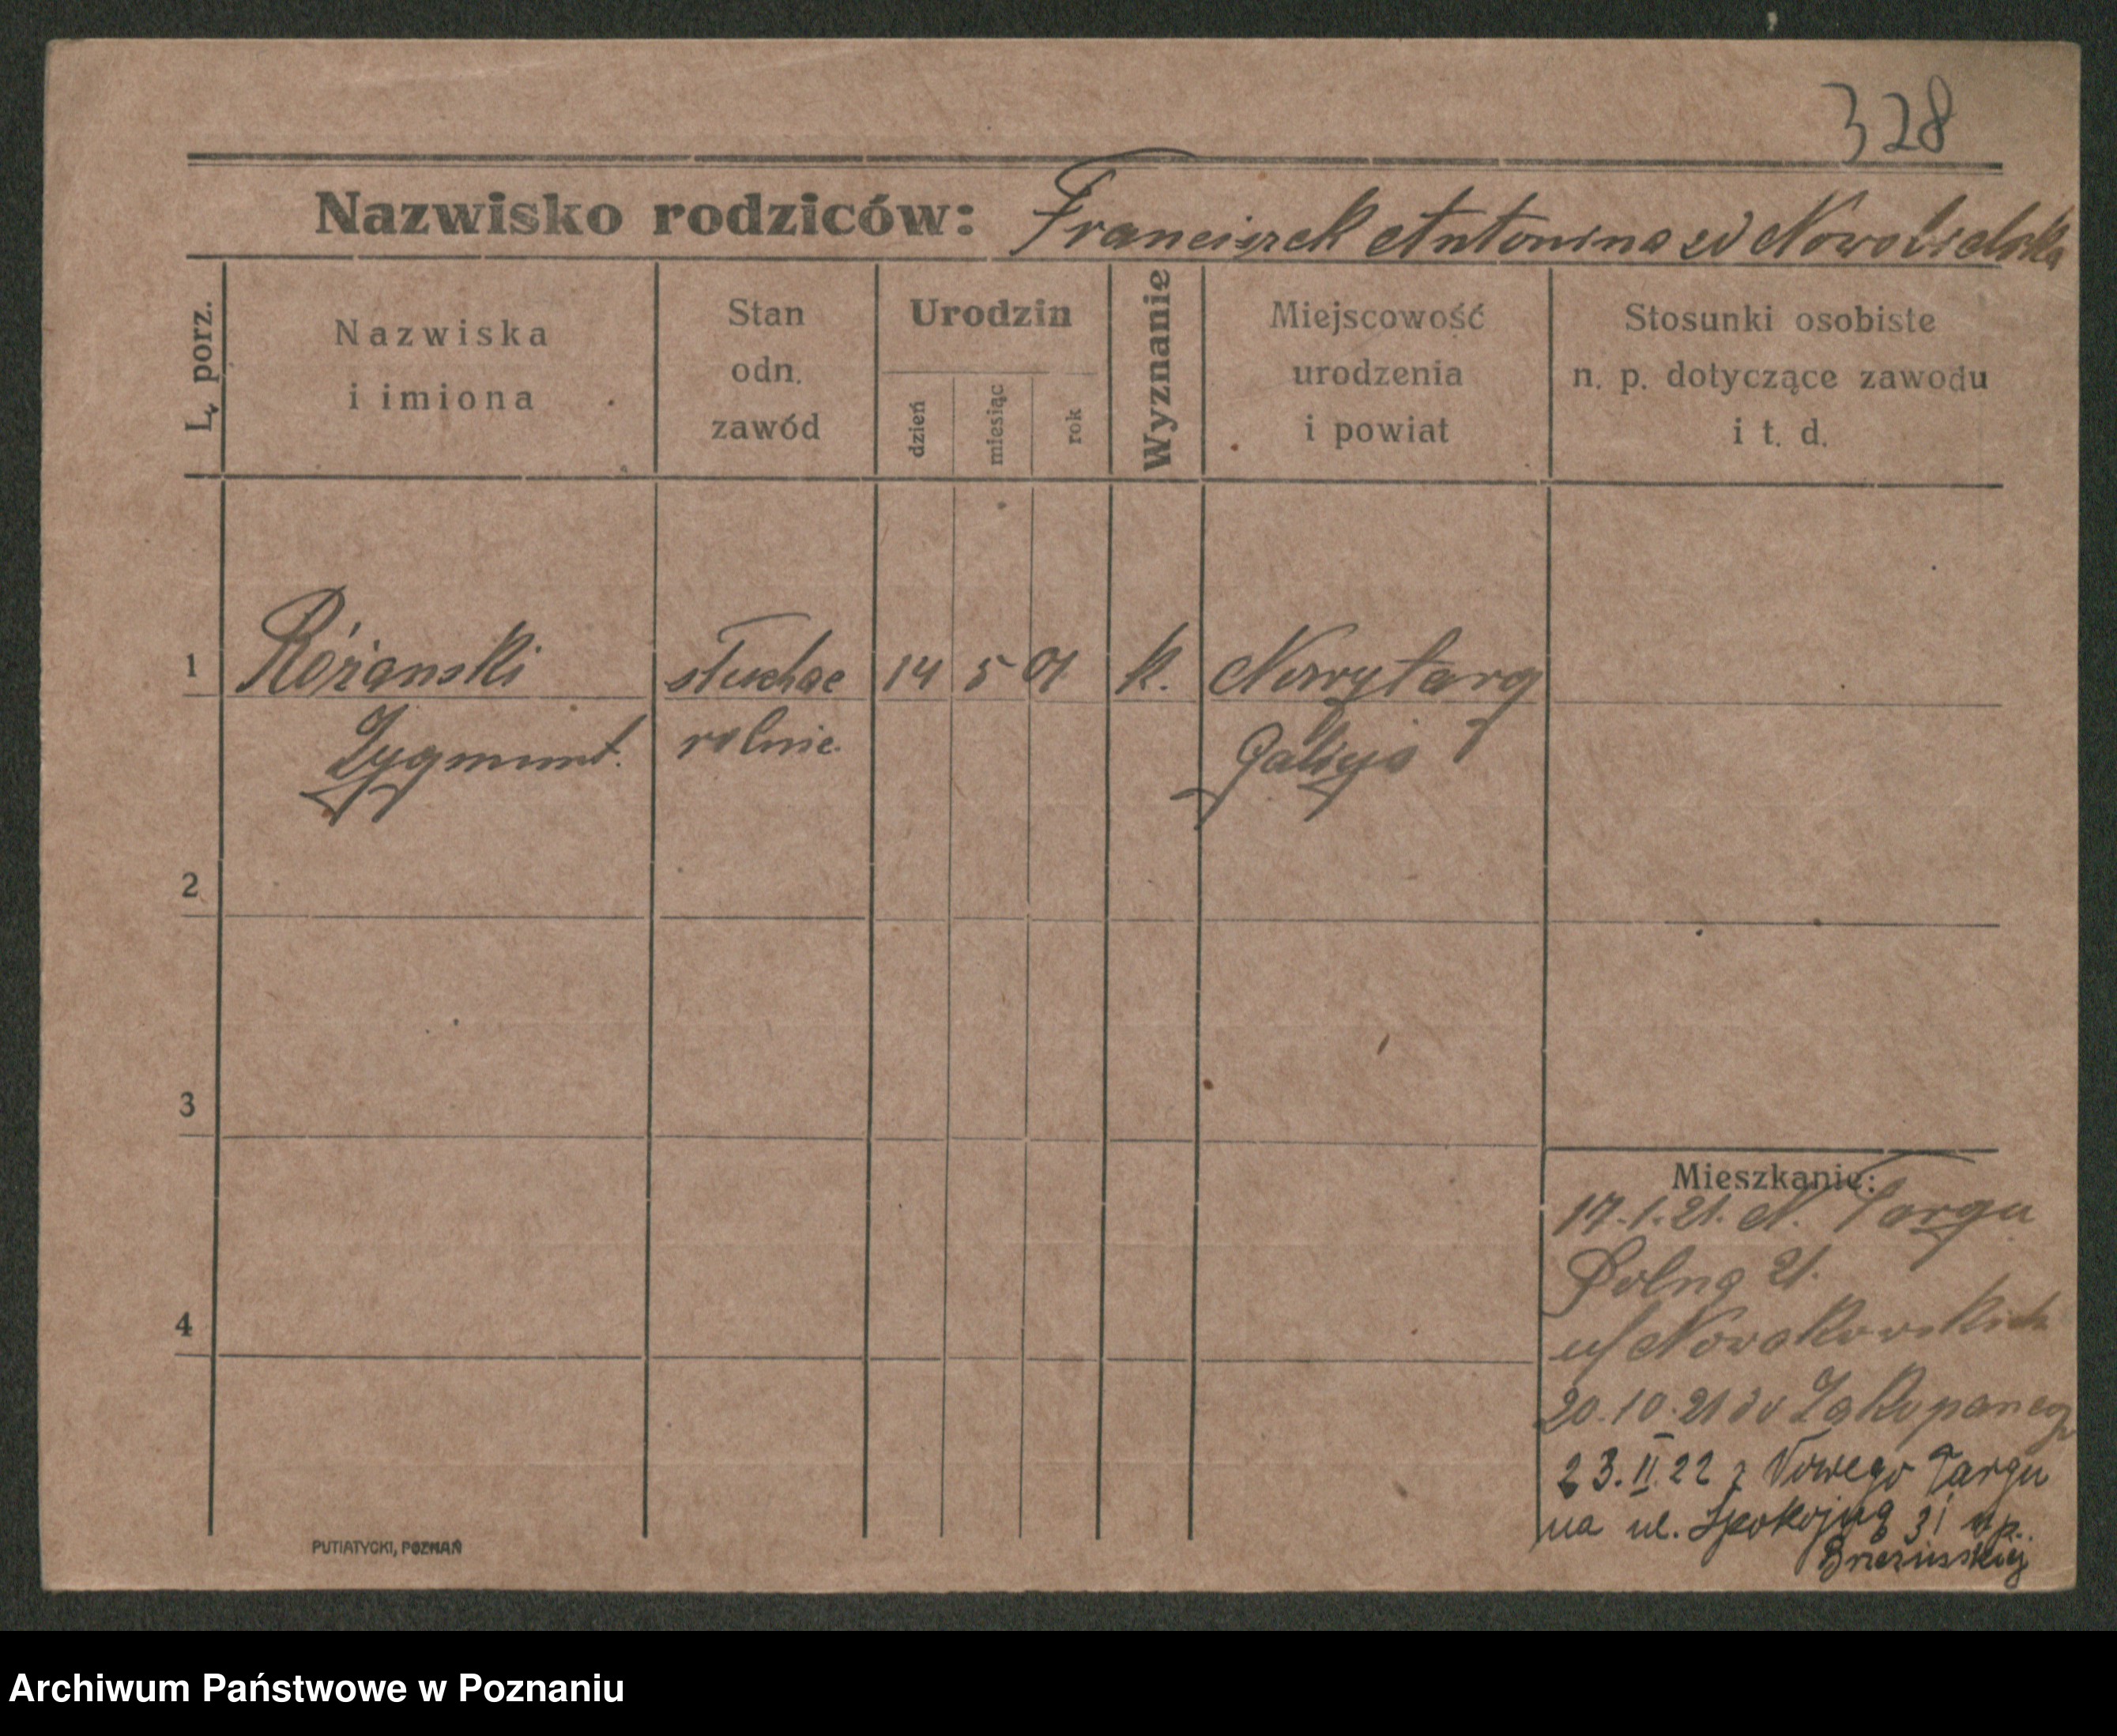 328
Nazwisko rodziców: Franciszek Antonina zd Nowobielska
L. porz.
Nazwiska
i imiona
Stan
odn.
zawód
Urodzin
dzień
miesiąc
rok
Wyznanie
Miejscowość
urodzenia
i powiat
Stosunki osobiste
n. p. dotyczące zawodu
i t. d.
1 Różanski słuchac 14 5 01 k. Nowytarg
Zygmunt. rolnic. Galicja
2
3
4
Mieszkanie:
17.1.21. N. Targu
Polna 21.
u/ Nowakowskich
20.10.21 do Zakopaneg
23.II.22 z Nowego Targu
na ul. Spokojną 31 u p.
Brzezińskiej
PUTIATYCKI, POZNAŃ
Archiwum Państwowe w Poznaniu